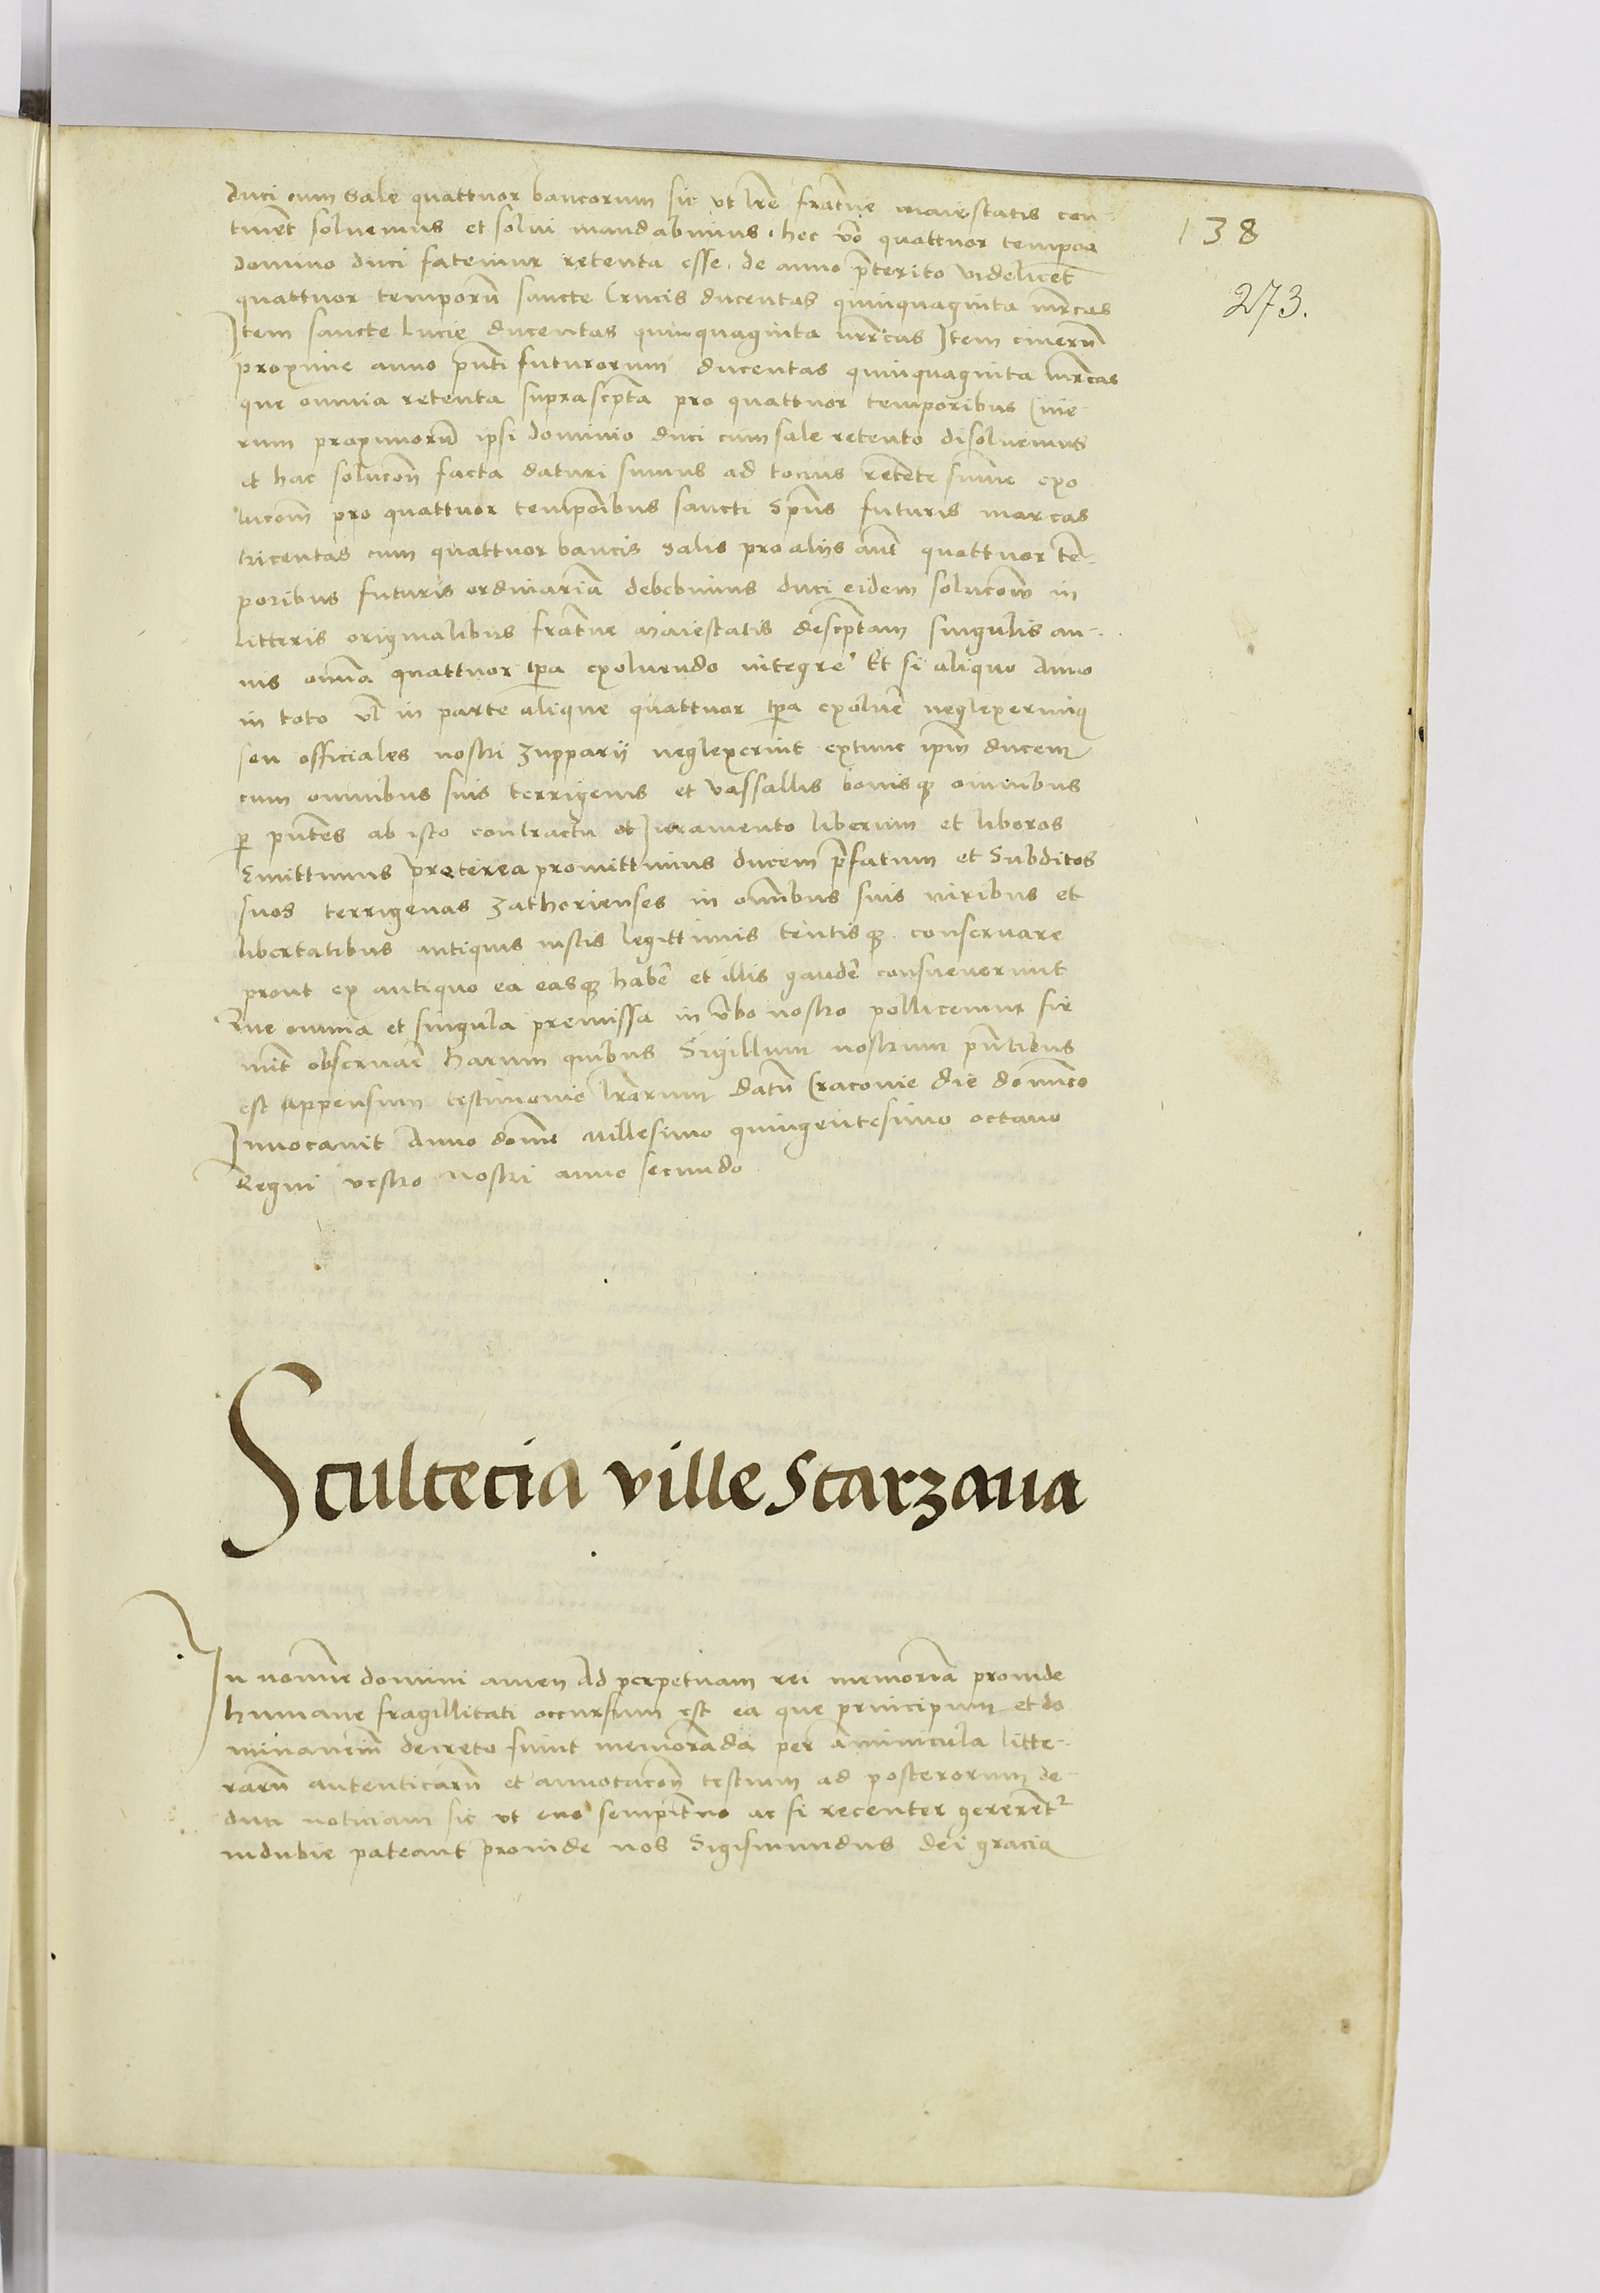 138
273.
duci cum sale quattuor bancorum sic ut lre fratrne maiestatis con-
tinet solvemus et solvi mandabimus. hec vo quattuor tempora
domino duci fatemur retenta esse. de anno pterito videlicet
quattuor temporu sancte Crucis ducentas quinquaginta mrcas
Item sancte Lucie ducentas quinquaginta mrcas Item cineru
proxime anno pnti futurorum ducentas quinquaginta mrcas
que omnia retenta suprascpta pro quattuor temporibus Cine-
rum proximoru ipsi domino duci cum sale retento disolvemus
et hac solucon facta daturi sumus ad tocius retente sume exo
lucom pro quattuor temporibus sancti Spus futuris marcas
tricentas cum quattuor bancis salis pro alijs aut quattuor te-
poribus futuris ordinaria debebimus duci eidem solucom in
litteris originalibus fratrne maiestatis descptam singulis an-
nis omnia quattuor tpa exolvendo integre Et si aliquo Anno
in toto vl in parte alique quattuor tpa exolvere neglexerimus
seu officiales nostri zupparij neglexerint extunc ipm ducem
cum omnibus suis terrigenis et vassallis bonisq omnibus
p pntes ab isto contractu et Juramento liberum et liberos
Emittimus preterea promittimus ducem pfatum et Subditos
suos terrigenas zathorienses in omnibus suis iuribus et
libertatibus antiquis iustis legittimis tentisq conservare
prout ex antiquo ea easq habere et illis gaudere consueverunt
Que omnia et singula premissa in vbo nostro pollicemur fir
mit observare harum quibus Sigillum nostrum pntibus
est appensum testimonio lrarum datu Cracovie die domico
Invocavit Anno domi millesimo quingentesimo octavo
Regni vestro nostri anno secundo
Scultecia ville Starzava
In nomine domini amen Ad perpetuam rei memoria provide
humane fragillitati occursum est ea que principum et do
minancium decreto fiunt memorada per aminicula litte-
raru autenticaru et annotacon testium ad posterorum de-
duci noticiam sic ut evo sempitno ac si recenter gererent
indubie pateant proinde nos Sigismundus dei gracia